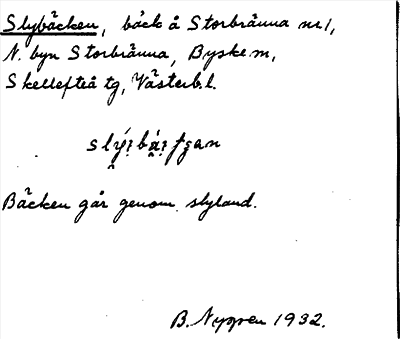 Slybäcken, bäck å Storbränna nr 1,
N. byn Storbränna, Byske m,
Skellefteå tg, Västerb. l.
Bäcken går genom slyland.
B. Nygren 1932.